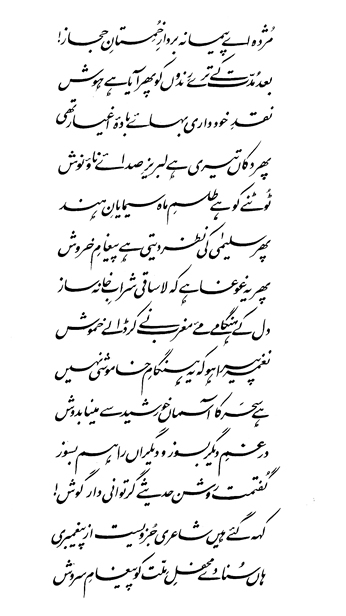 مژدہ اے پیمانہ بردارِ خمستانِ حجاز!
بعد مُدّت کے ترے رِندوں کو پھر آیا ہے ہوش
نقدِ خود داری بہائے بادۂ اغیار تھی
پھر دکاں تیری ہے لبریزِ صدائے ناؤ نوش
ٹُوٹنے کو ہے طلسمِ ماہ سیمایانِ ہند
پھر سلیمٰی کی نظر دیتی ہے پیغامِ خروش
پھر یہ غوغا ہے کہ لاساقی شرابِ خانہ ساز
دل کے ہنگامے مۓ مغرب نے کر ڈالے خموش
نغمہ پیرا ہو کہ یہ ہنگامِ خاموشی نہیں
ہے سحَر کا آسماں خورشید سے مینا بدوش
در غمِ دیگر بسوز و دیگراں را ہم بسوز
گُفتمت روشن حدیثے گر توانی دار گوش!
کہہ گئے ہیں شاعری جُزویست از پیغمبری
ہاں سُنا دے محفلِ ملّت کو پیغامِ سروش